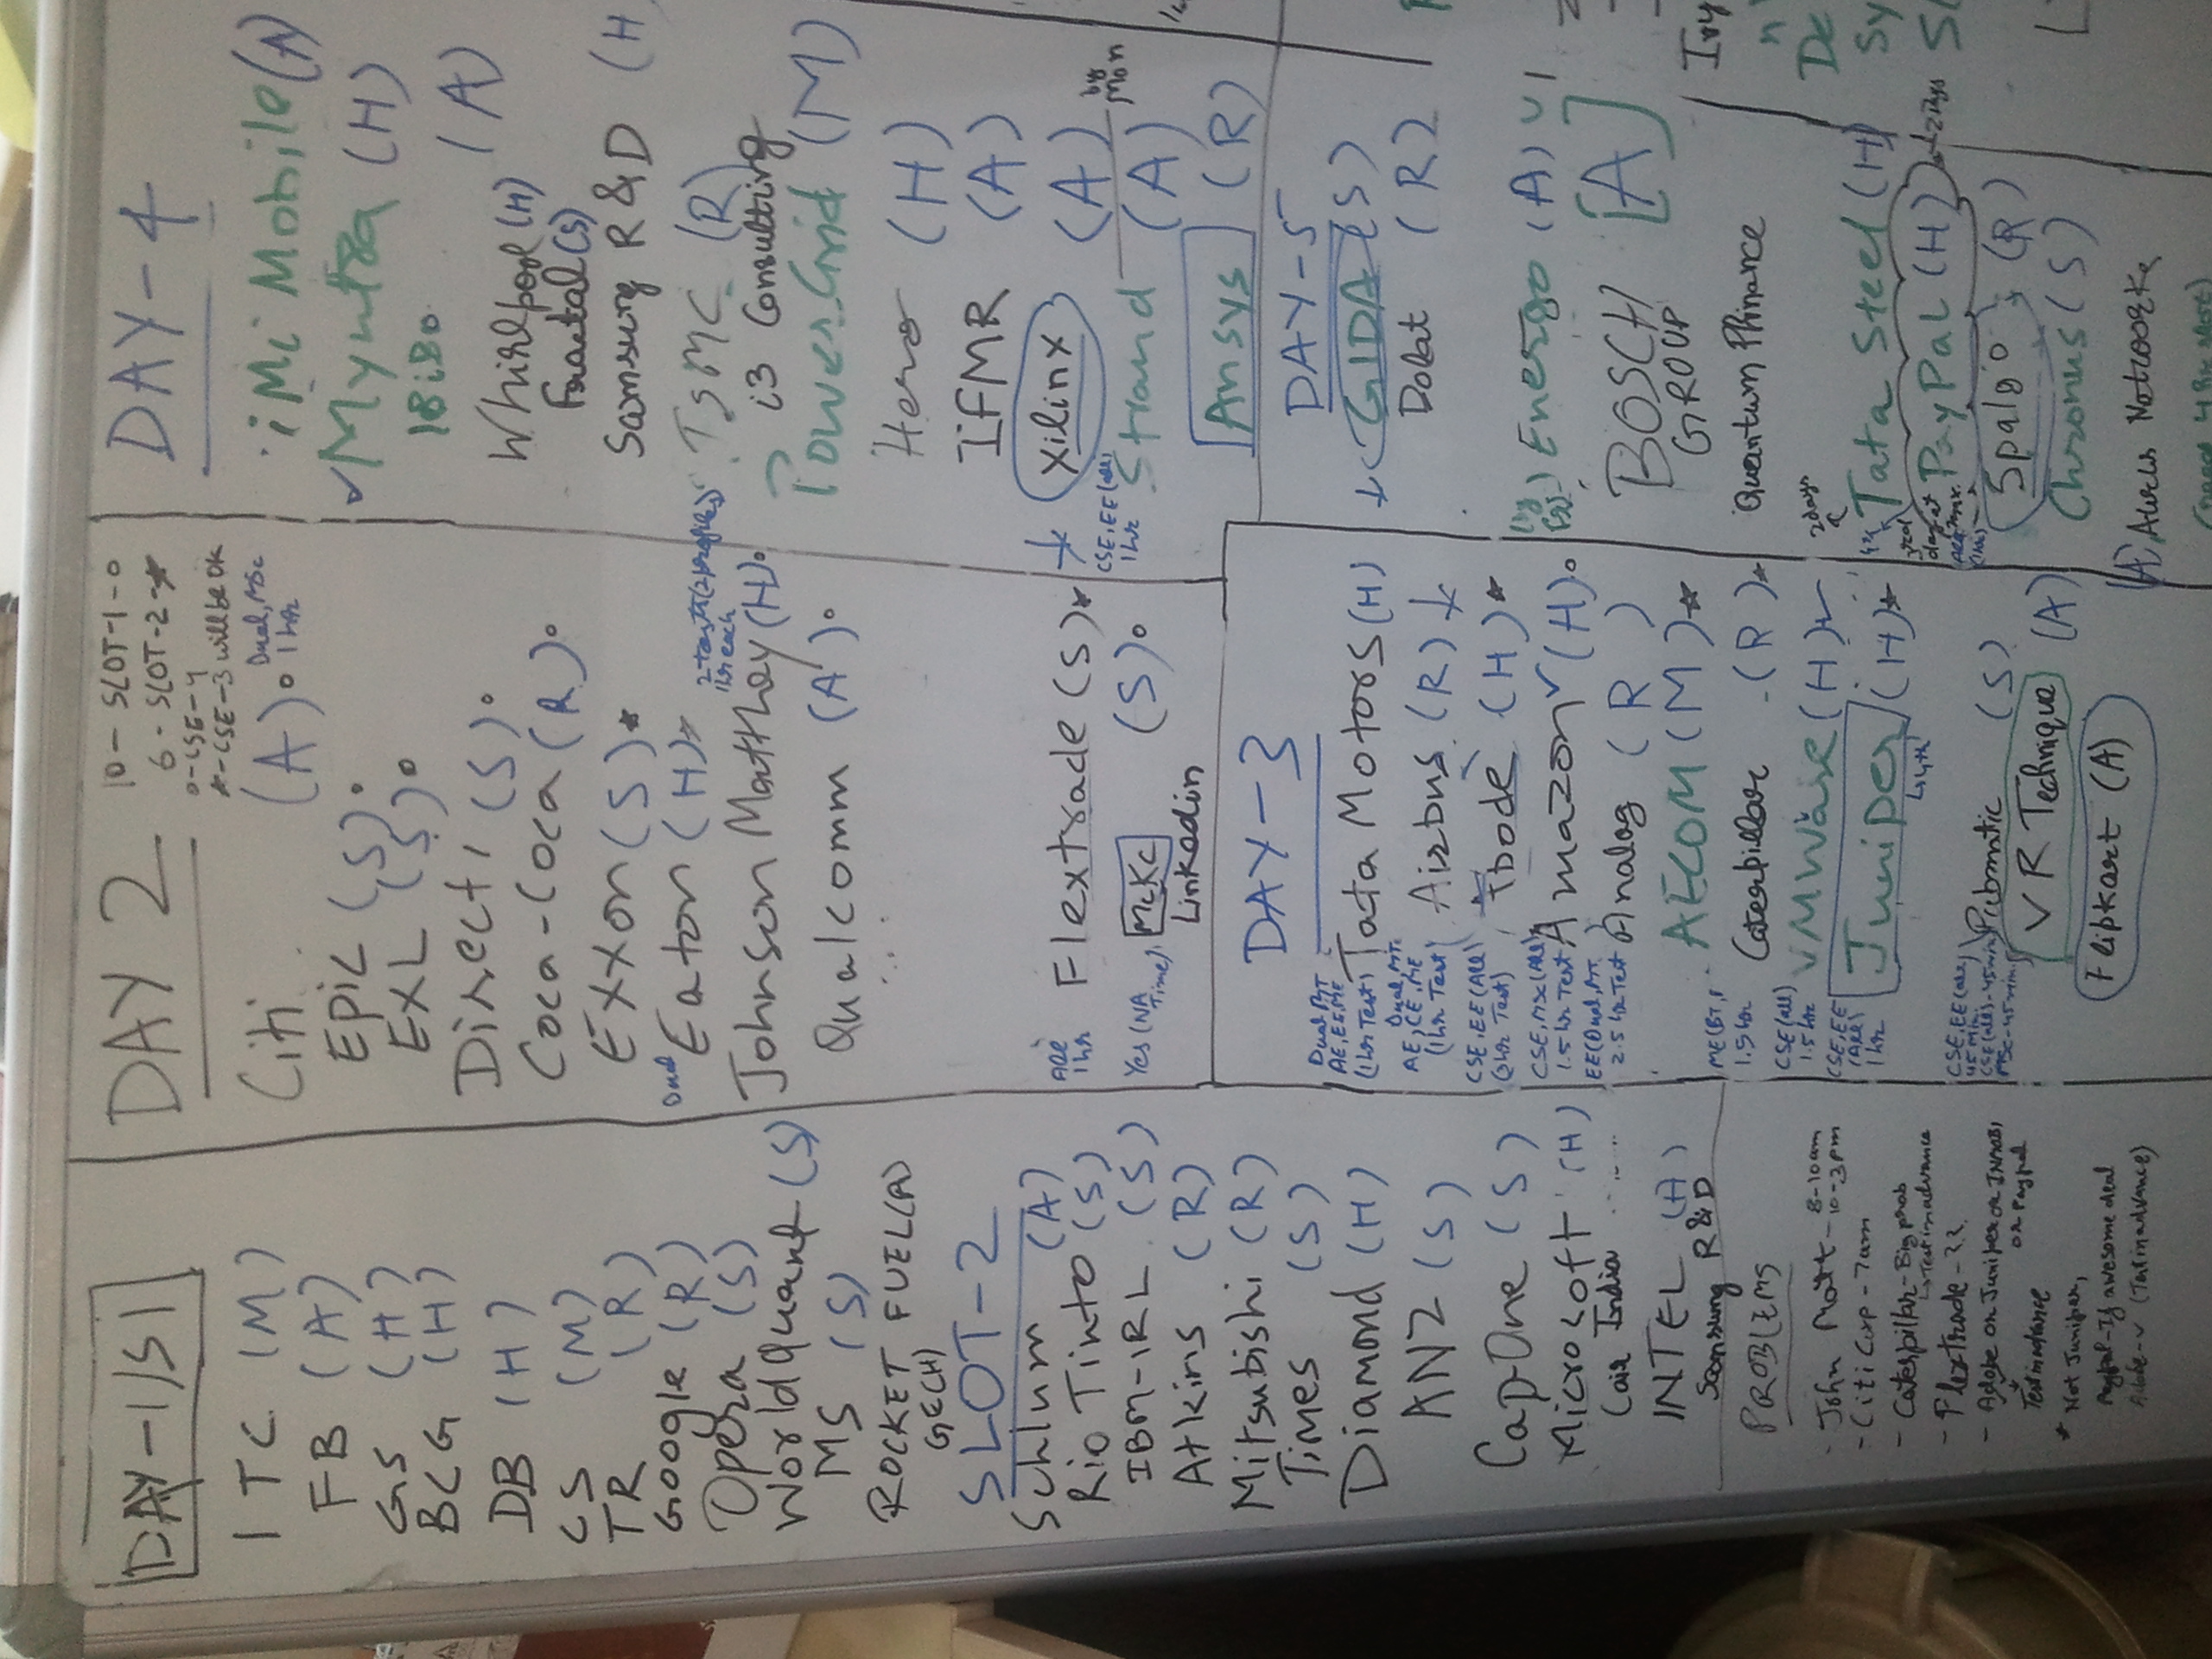 DAY-1/S1
ITC (M)
FB (A)
GS (H)
BCG (H)
DB (H)
CS (M)
TR (R)
Google (R)
Opera (S)
WorldQuant (S)
MS (S)
ROCKET FUEL(A)
GE(H)
SLOT-2
Schlum (A)
Rio Tinto (S)
IBM-IRL (S)
Atkins (R)
Mitsubishi (R)
Times (S)
Diamond (H)
ANZ (S)
Cap-One (S)
Microsoft (H)
Cair India
INTEL (A)
Samsung R&D
PROBLEMS
- John Matt - 8-10am
10-3pm
- Citi Corp - 7am
- Caterpillar - Big prob
↳ Test in advance
- Flextrade - ??
- Adobe or Juniper or INMOBI
or Paypal
Test in advance
* Not Juniper,
Paypal - If awesome deal
Adobe - v (Test in advance)
DAY 2
10 - SLOT-1 - o
6 - SLOT-2 - *
o - CSE - 4
* - CSE - 3 will be OK
Citi (A) o Dual, MSc
1 hr
Epic (S) o
EXL (S) o
Directi (S) o
Coca-Coca (R) o
Exxon (S) *
Dual Eaton (H) *
2 tests (2 profiles)
1hr each
Johnson Matthey (H) o
Qualcomm (A) o
All
1hr Flextrade (S) *
Yes (NA
Time) McKc (S) o
Linkedin
DAY-3
Dual, MT
AE, EE, ME
(1hr Test) Tata Motors (H)
Dual, MT
AE, CE, ME
(1hr Test) Airbus (R)
CSE, EE (All)
Test) (H) *
CSE, MSc (All)
1.5 hr Test Amazon ✓ (H) o
EE (Dual, MT
2.5 hr Test Analog (R)
AECOM (M) *
ME (BT,
1.5 hr Caterpillar - (R) *
CSE (all)
1.5 hr VMWare (H) ✓
CSE, EE
(All)
1hr Juniper (H) *
↳ 4th
CSE, EE (all)
45 Min.
CSE (all) - 45 min
MSc - 45 min
Pubmatic (S)
VR Technique (A)
Flipkart (A)
DAY-4
iMi Mobile (A)
✓ Myntra (H)
IBiBo (A)
Whirlpool (H)
Fractal (S)
Samsung R&D (H
TSMC (R)
i3 Consulting
Power Grid (M)
Hero (H)
IFMR (A)
Xilinx (A)
CSE, EE (all)
1hr
by
Mon
Strand (A)
Ansys (R)
DAY-5
GIDA (S)
Dolat (R)
Energo (A) v 1
BOSCH [A]
GROUP
Quantum Phinance
2 days
Tata Steel (H)
PayPal (H) 2 Days
3rd
day at
max.
Spalgo (R)
Chronus (S)
(A)